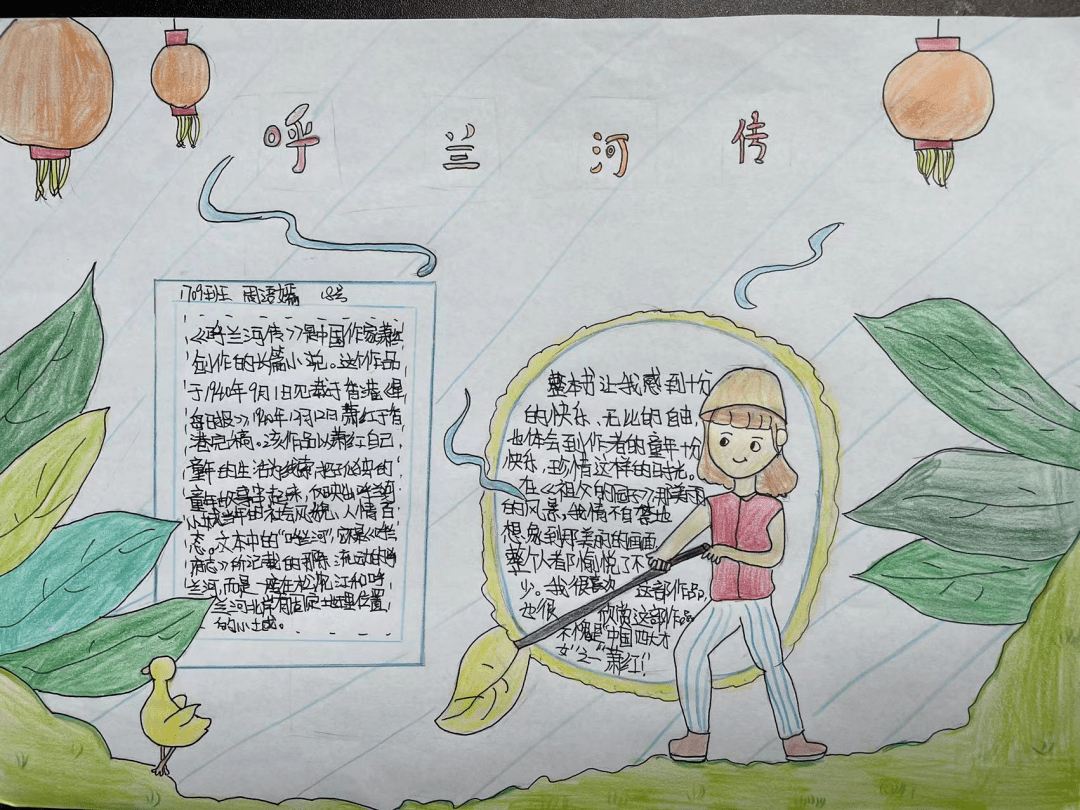 呼兰河传
1709班 周语嫣 18号
《呼兰河传》是中国作家萧红
创作的长篇小说。这个作品
于1940年9月1日见载于香港《星
岛日报》1940年12月12日萧红于香
港完稿。该作品以萧红自己
童年的生活为线索,把孤独的
童年故事串起来,反映出呼兰河
小城当年的社会风貌、人情百
态。文本中的“呼兰河”
所记载的那条流动的呼
兰河,而是一座在松花江和呼
兰河北岸有固定地理位置
的小城。
整本书让我感到十分
的快乐、无比的自由,
也体会到作者的童年十分
快乐,珍惜这样的时光。
在《祖父的园子》那美丽
的风景,我情不自禁地
想象到那美丽的画面,
整个人都愉悦了不
少。我很喜欢 这部作品,
也很 欣赏这部作品
不愧是“中国四大才
女”之一萧红!